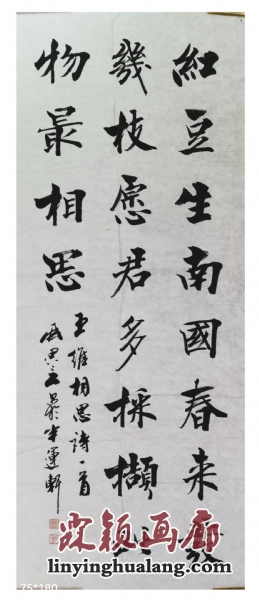 紅豆生南國春来發
幾枝愿君多採擷此
物最相思
王維相思詩一首
半運軒
霖颖画廊
linyinghualang.com
75*180